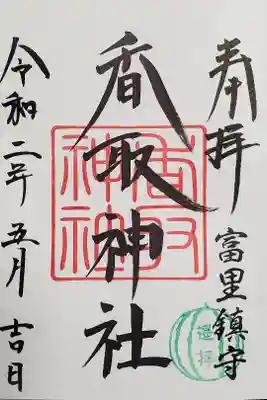 奉拝
富里鎮守
香取神社
香取神社
令和二年五月吉日
遥拝